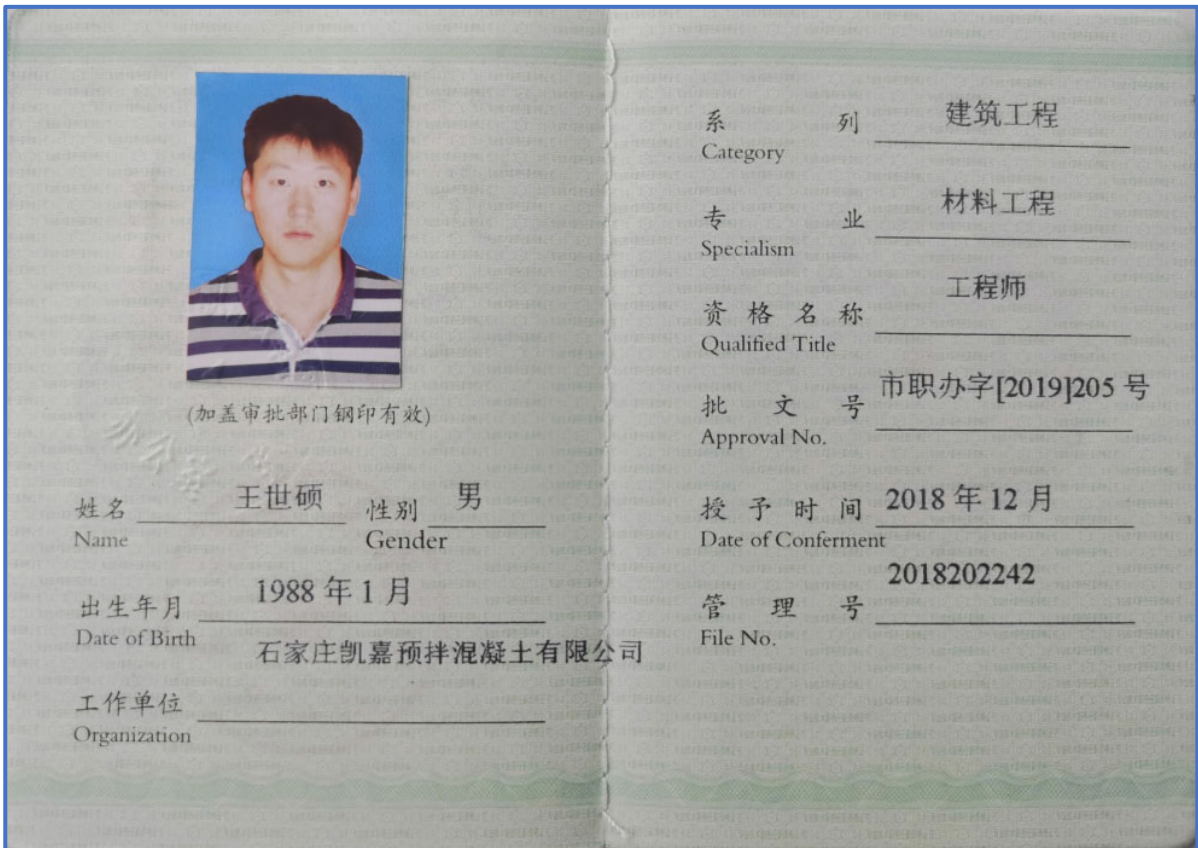 (加盖审批部门钢印有效)
姓名 王世硕 性别 男
Name Gender
出生年月 1988 年 1 月
Date of Birth
石家庄凯嘉预拌混凝土有限公司
工作单位
Organization
系列 建筑工程
Category
专业 材料工程
Specialism
资格名称 工程师
Qualified Title
批文号 市职办字[2019]205 号
Approval No.
授予时间 2018 年 12 月
Date of Conferment
2018202242
管理号
File No.